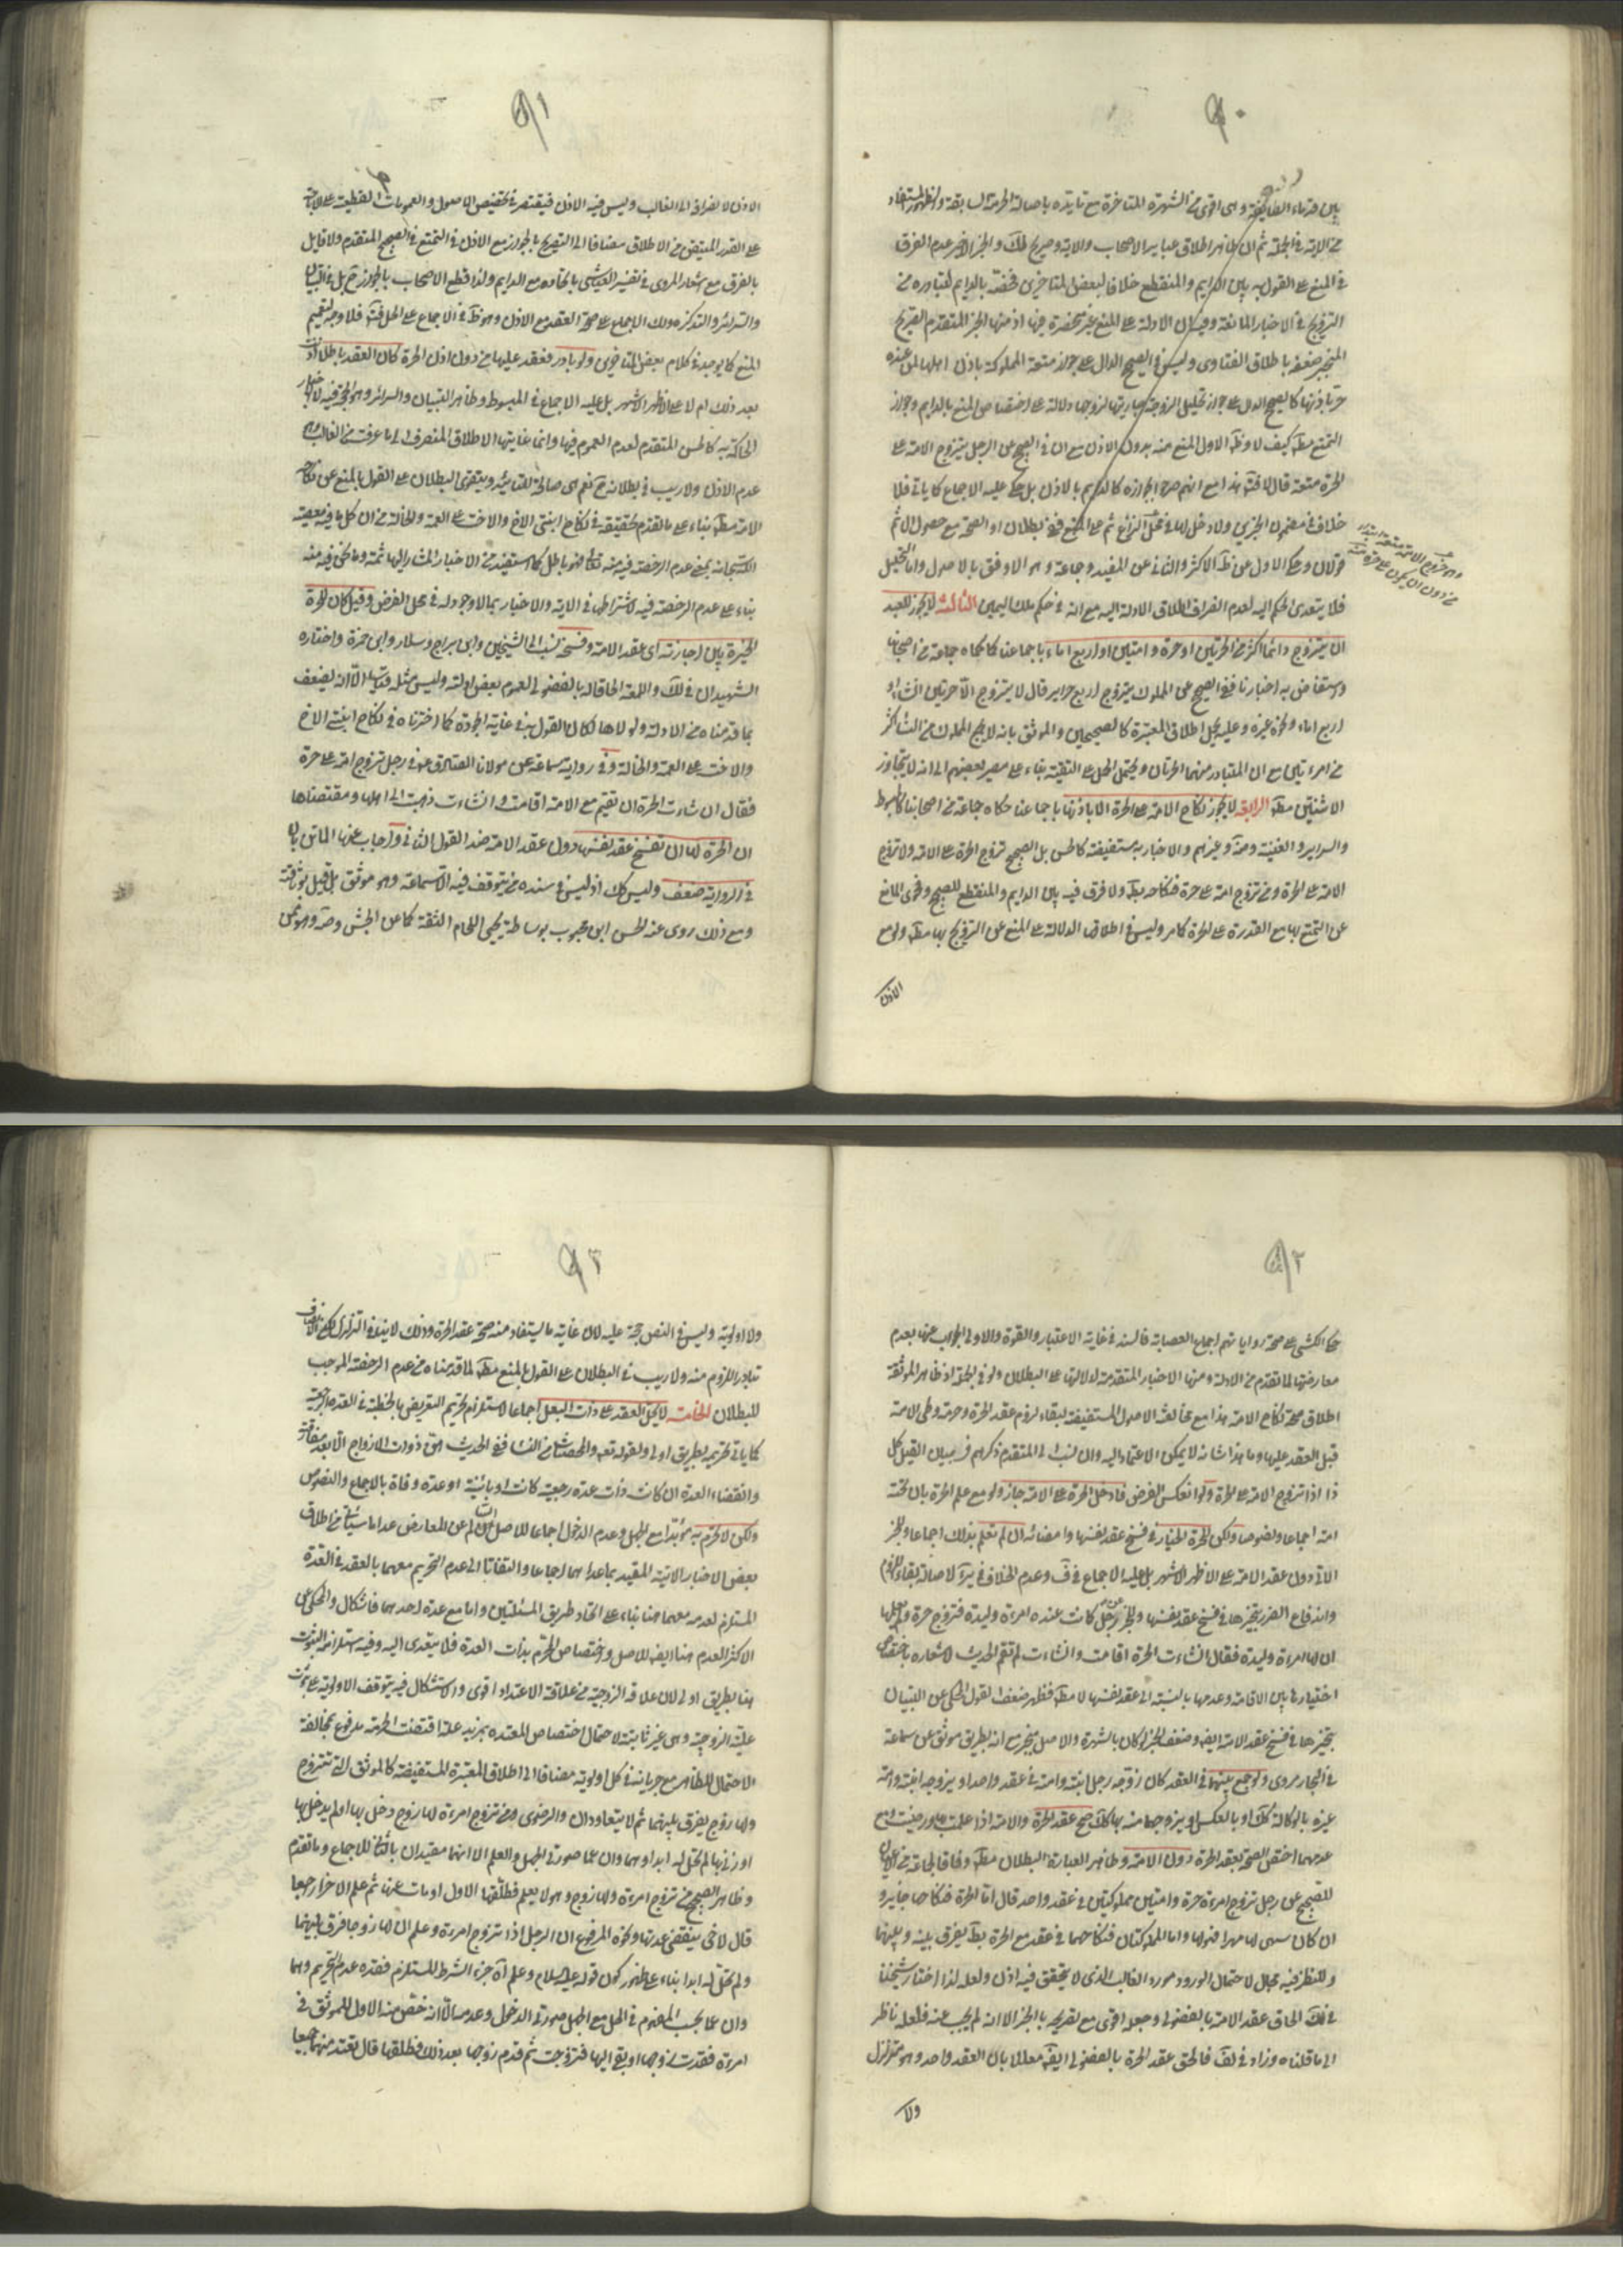 بين قدماء الطائفة وهى اقوى من الشهرة المتاخرة مع تايده باصالة الحرمة السابقة
من الاية فى الجملة ثم ان ظاهر اطلاق عباير الاصحاب والاية وصريح الخبر الاخير عدم الفرق
فى المنع على القول به بين الدايم والمنقطع خلافا لبعض المتاخرين فخصه بالدايم لتبادره من
التزويج فى الاخبار المانعة وفيه ان الادلة على المنع غير منحصرة فيها اذ منها الخبر المتقدم الصريح
المنجبر ضعفه باطلاق الفتاوى وليس فى الصحيح الدال على جواز متعة المملوكة باذن اهلها لمن عنده
حرة باذنها كالصحيح الدال على جواز تحليل الزوجة جاريتها لزوجها دلالة على اختصاص المنع بالدايم وجواز
التمتع مط كيف لا وظ الاول المنع منه بدون الاذن مع ان فى الصحيح عن الرجل يتزوج الامة على
الحرة متعة قال لا هذا مع انهم صرحوا بجوازه كالدايم بالاذن بل حكى عليه الاجماع كما ياتى فلا
خلاف فى مضمون الخبرين ولا دخل لهما فى محل النزاع ثم على المنع ففى البطلان او الصحة مع حصول الاثم
قولان وحكى الاول عن ظ الاكثر والثانى عن المفيد وجماعة وهو الاوفق بالاصول واما التحليل
فلا يتعدى الحكم اليه لعدم انصراف اطلاق الادلة اليه مع انه فى حكم ملك اليمين الثالثة لا يجوز للعبد
ان يتزوج دائما اكثر من الحرتين او حرة وامتين او اربع اماء باجماعنا كما حكاه جماعة من اصحابنا
واستفاض به اخبارنا ففى الصحيح عن المملوك يتزوج اربع حراير قال لا يتزوج الا حرتين ان شاء او
اربع اماء ونحوه غيره وعليه يحمل اطلاق المعتبرة كالصحيحين والموثق بانه لا يجمع المملوك من النساء اكثر
من امرءتين مع ان المتبادر منهما الحرتان ويحتمل الحمل على التقية بناء على مصير بعضهم الى انه لا يتجاوز
الاثنتين مط الرابعة لا يجوز نكاح الامة على الحرة الا باذنها باجماعنا حكاه جماعة من اصحابنا كالمبسوط
والسراير والغنية وغيرهم والاخبار به مستفيضة كالحسن بل الصحيح تزوج الحرة على الامة ولا تزوج
الامة على الحرة ومن تزوج امة على حرة فنكاحه بط ولا فرق فيه بين الدايم والمنقطع للصحيح وفحوى المانع
عن التمتع بها مع القدرة على الحرة كما مر وليس فى اطلاقها الدلالة على المنع عن التزويج بها مط ولو مع
الاذن
٩١
الاذن لانصرافه الى الغالب وليس فيه الاذن فيقتصر فى تخصيص الاصول والعمومات القطعية
على القدر المتيقن من الاطلاق مضافا الى التصريح بالجواز مع الاذن فى التمتع فى الصحيح المتقدم ولا قايل
بالفرق مع اشعار المروى فى تفسير العياشى باتحاده مع الدايم ولذا قطع الاصحاب بالجواز ح بل فى التبيان
والسرائر والتذكرة ولك الاجماع على صحة العقد مع الاذن وهو ظ فى الاجماع على الحل فلا وجه لتعميم
المنع كما يوجد فى كلام بعض المتاخرين ولو بادر فعقد عليها من دون اذن الحرة كان العقد باطلا
بعد ذلك ام لا على الاظهر الاشهر بل عليه الاجماع فى المبسوط وظاهر التبيان والسرائر وهو الحجة فيه
الحاكمة به كالحسن المتقدم لعدم العموم فيها وانما غايتها الاطلاق المنصرف الى ما عرفت من الغالب
عدم الاذن ولا ريب فى بطلانه ح نعم هى صالحة للتاييد ويتقوى البطلان على القول بالمنع عن نكاح
الامة مط بناء على ما تقدم تحقيقه فى نكاح ابنتى الاخ والاخت على العمة والخالة من ان كل ما فيه معصية
بناء على عدم الرخصة فيه لاشتراطها فى الاية والاخبار بما لا وجود له فى محل الفرض وقيل كان للحرة
الخيرة بين اجازته اى عقد الامة وفسخه نسب الى الشيخين وابن براج وسلار وابن حمزة واختاره
الشهيدان فى لك واللمعة الحاقا له بالفضولى لعموم بعض ادلته وليس مثله قياسا الا انه يضعف
بما قدمناه من الادلة ولولاها لكان القول به فى غاية الجودة كما اخترناه فى نكاح ابنتى الاخ
والاخت على العمة والخالة وفى رواية سماعة عن مولانا الصادق ع فى رجل تزوج امة على حرة
فقال ان شاءت الحرة ان تقيم مع الامة اقامت وان شاءت ذهبت الى اهلها ومقتضاها
ان الحرة لها ان تفسخ عقد نفسها دون عقد الامة ضد القول الثانى واجاب عنها الماتن بان
فى الرواية ضعف وليس كك اذ ليس فى سنده من يتوقف فيه الا سماعة وهو موثق بل قيل بوثاقته
ومع ذلك روى عنه الحسن ابن محبوب بوساطة يحيى اللحام الثقة كما عن النجاشى وصه وهو ممن
٩٢
حكى الكشى على صحة رواياتهم اجماع العصابة فالسند فى غاية الاعتبار والقوة والاولى الجواب عنها بعدم
معارضتها لما تقدم من الادلة ومنها الاخبار المتقدمة لدلالتها على البطلان ولو فى الجملة اذ ظاهر الموثقة
اطلاق صحة نكاح الامة هذا مع مخالفته الاصول المستفيضة لبقاء لزوم عقد الحرة وحرمة وطى الامة
قبل العقد عليها وما هذا شانه لا يمكن الاعتماد اليه وان نسب الى المتقدم ذكرهم فى بيان القيل كل
ذا اذا تزوج الامة على الحرة ولو انعكس الفرض فادخل الحرة على الامة جاز ولو مع علم الحرة بان تحته
امة اجماعا ونصوصا ولكن للحرة الخيار فى فسخ عقد نفسها وامضائه ان لم تعلم بذلك اجماعا وللخبر
الاتى دون عقد الامة على الاظهر الاشهر بل عليه الاجماع فى ف وعدم الخلاف فى ير لاصالة بقاء اللزوم
واندفاع الضرر بتخيرها فى فسخ عقد نفسها وللخبر عن رجل كانت عنده امرءة وليدة فتزوج حرة ولم يعلمها
ان له امرءة وليدة فقال ان شاءت الحرة اقامت وان شاءت لم تقم الحديث لاشعاره باختصاص
اختيارها بين الاقامة وعدمها بالنسبة الى عقد نفسها لا مط فظهر ضعف القول المحكى عن التبيان
بتخيرها فى فسخ عقد الامة ايض وضعف الخبر لو كان بالشهرة والاصل منجبر مع انه بطريق موثق عن سماعة
فى البحار مروى ولو جمع بينهما فى العقد كان زوجه رجل ابنته وامته فى عقد واحد او يزوجه ابنته وامة
غيره بالوكالة كك او بالعكس او يزوجهما منه بهما كك صح عقد الحرة والامة اذا علمت ورضيت ومع
عدمهما اختص الصحة بعقد الحرة دون الامة وظاهر العبارة البطلان مط وفاقا لجماعة من الاعيان
للصحيح عن رجل تزوج امرءة حرة وامتين مملوكتين فى عقد واحد قال اما الحرة فنكاحها جايز و
ان كان سمى لها مهرا فهو لها واما المملوكتان فنكاحهما فى عقد مع الحرة بط يفرق بينه وبينهما
وللنظر فيه مجال لاحتمال الورود مورد الغالب الذى لا يتحقق فيه اذن ولعله لذا اختار شيخنا
فى لك الحاق عقد الامة بالفضولى وجعله اقوى مع تصريحه بالخبر الا انه لم يجب عنه فلعله ناظر
الى ما قلناه وزاد فى لف فالحق عقد الحرة بالفضولى ايض معللا بان العقد واحد وهو متزلزل
ولا
٩٣
ولا اولوية وليس فى النص حجة عليه لان غاية ما يستفاد منه صحة عقد الحرة وذلك لا ينافى التزلزل
تبادر اللزوم منه ولا ريب فى البطلان على القول بالمنع مط لما قدمناه من عدم الرخصة الموجب
للبطلان الخامسة لا يحل العقد على ذات البعل اجماعا لاستلزام تحريم التعريض بالخطبة فى العدة الرجعية
كما ياتى تحريمه بطريق اولى ولقوله تعه والمحصنات من النساء ففى الحديث هن ذوات الازواج الا بعد مفارقته
وانقضاء العدة ان كانت ذات عدة رجعية كانت او بائنة او عدة وفاة بالاجماع والنصوص
ولكن لا تحرم به مؤبدا مع الجهل وعدم الدخول اجماعا للاصل السالم عن المعارض عدا ما سياتى من اطلاق
بعض الاخبار الاتية المقيد بما عداهما اجماعا والتفاتا الى عدم التحريم معهما بالعقد فى العدة
المستلزم لعدمه معهما هنا بناء على اتحاد طريق المسئلتين واما مع عدم احدهما فاشكال والمحكى عن
الاكثر العدم هنا ايض للاصل واختصاص المحرم بذات العدة فلا يتعدى اليه وفيه استلزامه الثبوت
هنا بطريق اولى لان علاقة الزوجية من علاقة الاعتداد اقوى والاستشكال فيه بتوقف الاولوية على ثبوت
علية الزوجية وهى غير ثابتة لاحتمال اختصاص المعتدة بمزيد علة اقتضت الحرمة مدفوع بمخالفة
الاحتمال للظاهر مع جريانه فى كل اولوية مضافا الى اطلاق المعتبرة المستفيضة كالموثق التى تتزوج
ولها زوج يفرق بينهما ثم لا يتعاودان والرضوى ومن تزوج امرءة لها زوج دخل بها اولم يدخل بها
او زنى بها لم تحل له ابدا وهما وان عما صورتى الجهل والعلم الا انهما مقيدان بالثانى للاجماع وما تقدم
وظاهر الصحيح من تزوج امرءة ولها زوج وهو لا يعلم فطلقها الاول او مات عنها ثم علم الاخر ايراجعها
قال لا حتى ينقضى عدتها ونحوه المرفوع ان الرجل اذا تزوج امرءة وعلم ان لها زوجا فرق بينهما
ولم تحل له ابدا بناء على ظهور كون قوله عليه السلام وعلم اه جزء الشرط المستلزم فقده عدم التحريم وهما
وان عما بحسب المفهوم فى الحل مع الجهل صورتى الدخول وعدمه الا انه خص منه الاول للموثق فى
امرءة فقدت زوجها او نعى اليها فتزوجت ثم قدم زوجها بعد ذلك فطلقها قال تعتد منهما جميعا